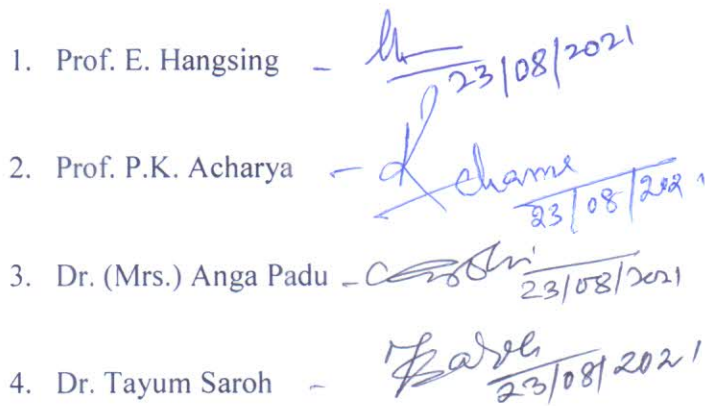 1. Prof. E. Hangsing - 23/08/2021
2. Prof. P.K. Acharya - 23/08/2021
3. Dr. (Mrs.) Anga Padu - 23/08/2021
4. Dr. Tayum Saroh - 23/08/2021